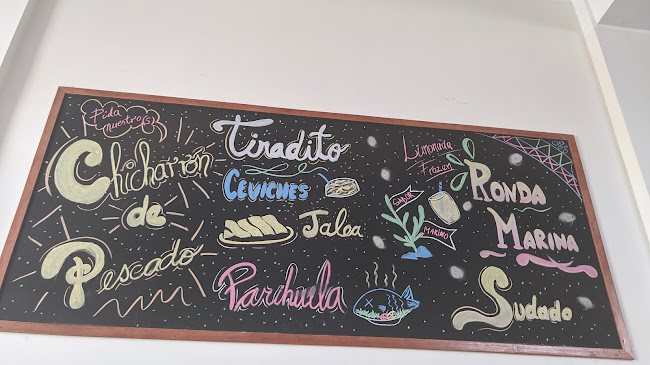 Pida
nuestro(s)
Chicharrón
de
Pescado
Tiradito
CEVICHES
Jalea
Parihuela
Limonada
Frozen
SABOR
MARINO
RONDA
MARINA
Sudado